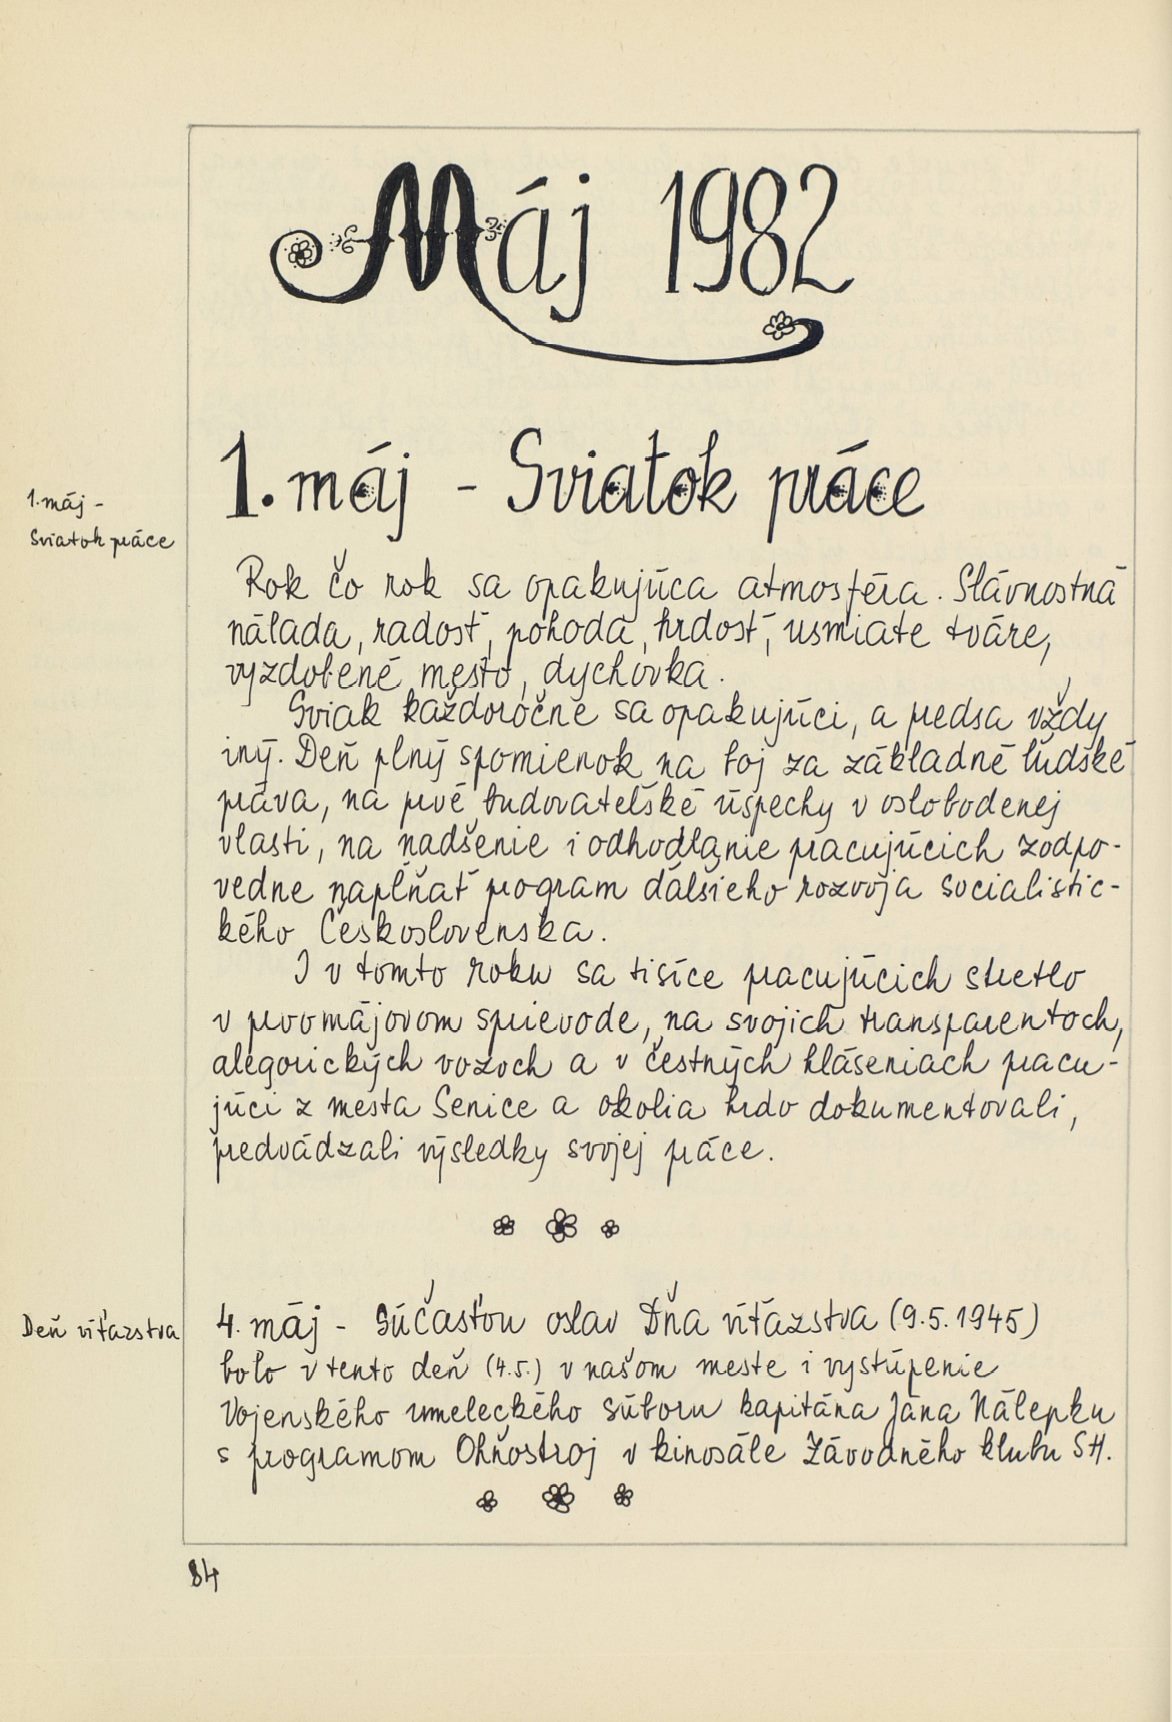 Máj 1982
1. máj - Sviatok práce
1. máj -
Sviatok práce
Rok čo rok sa opakujúca atmosféra. Slávnostná
nálada, radosť, pohoda, hrdosť, usmiate tváre,
vyzdobené mesto, dychovka.
Sviak každoročne sa opakujúci, a predsa vždy
iný. Deň plný spomienok na boj za základné ľudské
práva, na prvé budovateľské úspechy v oslobodenej
vlasti, na nadšenie i odhodlanie pracujúcich zodpo-
vedne napĺňať program ďalšieho rozvoja socialistic-
kého Československa.
I v tomto roku sa tisíce pracujúcich stretlo
v prvomájovom sprievode, na svojich transparentoch,
alegorických vozoch a v čestných hláseniach pracu-
júci z mesta Senice a okolia hrdo dokumentovali,
predvádzali výsledky svojej práce.
Deň víťazstva
4. máj - Súčasťou osláv Dňa víťazstva (9.5.1945)
bolo v tento deň (4.5.) v našom meste i vystúpenie
Vojenského umeleckého súboru kapitána Jána Nálepku
s programom Ohňostroj v kinosále Závodného klubu SH.
84